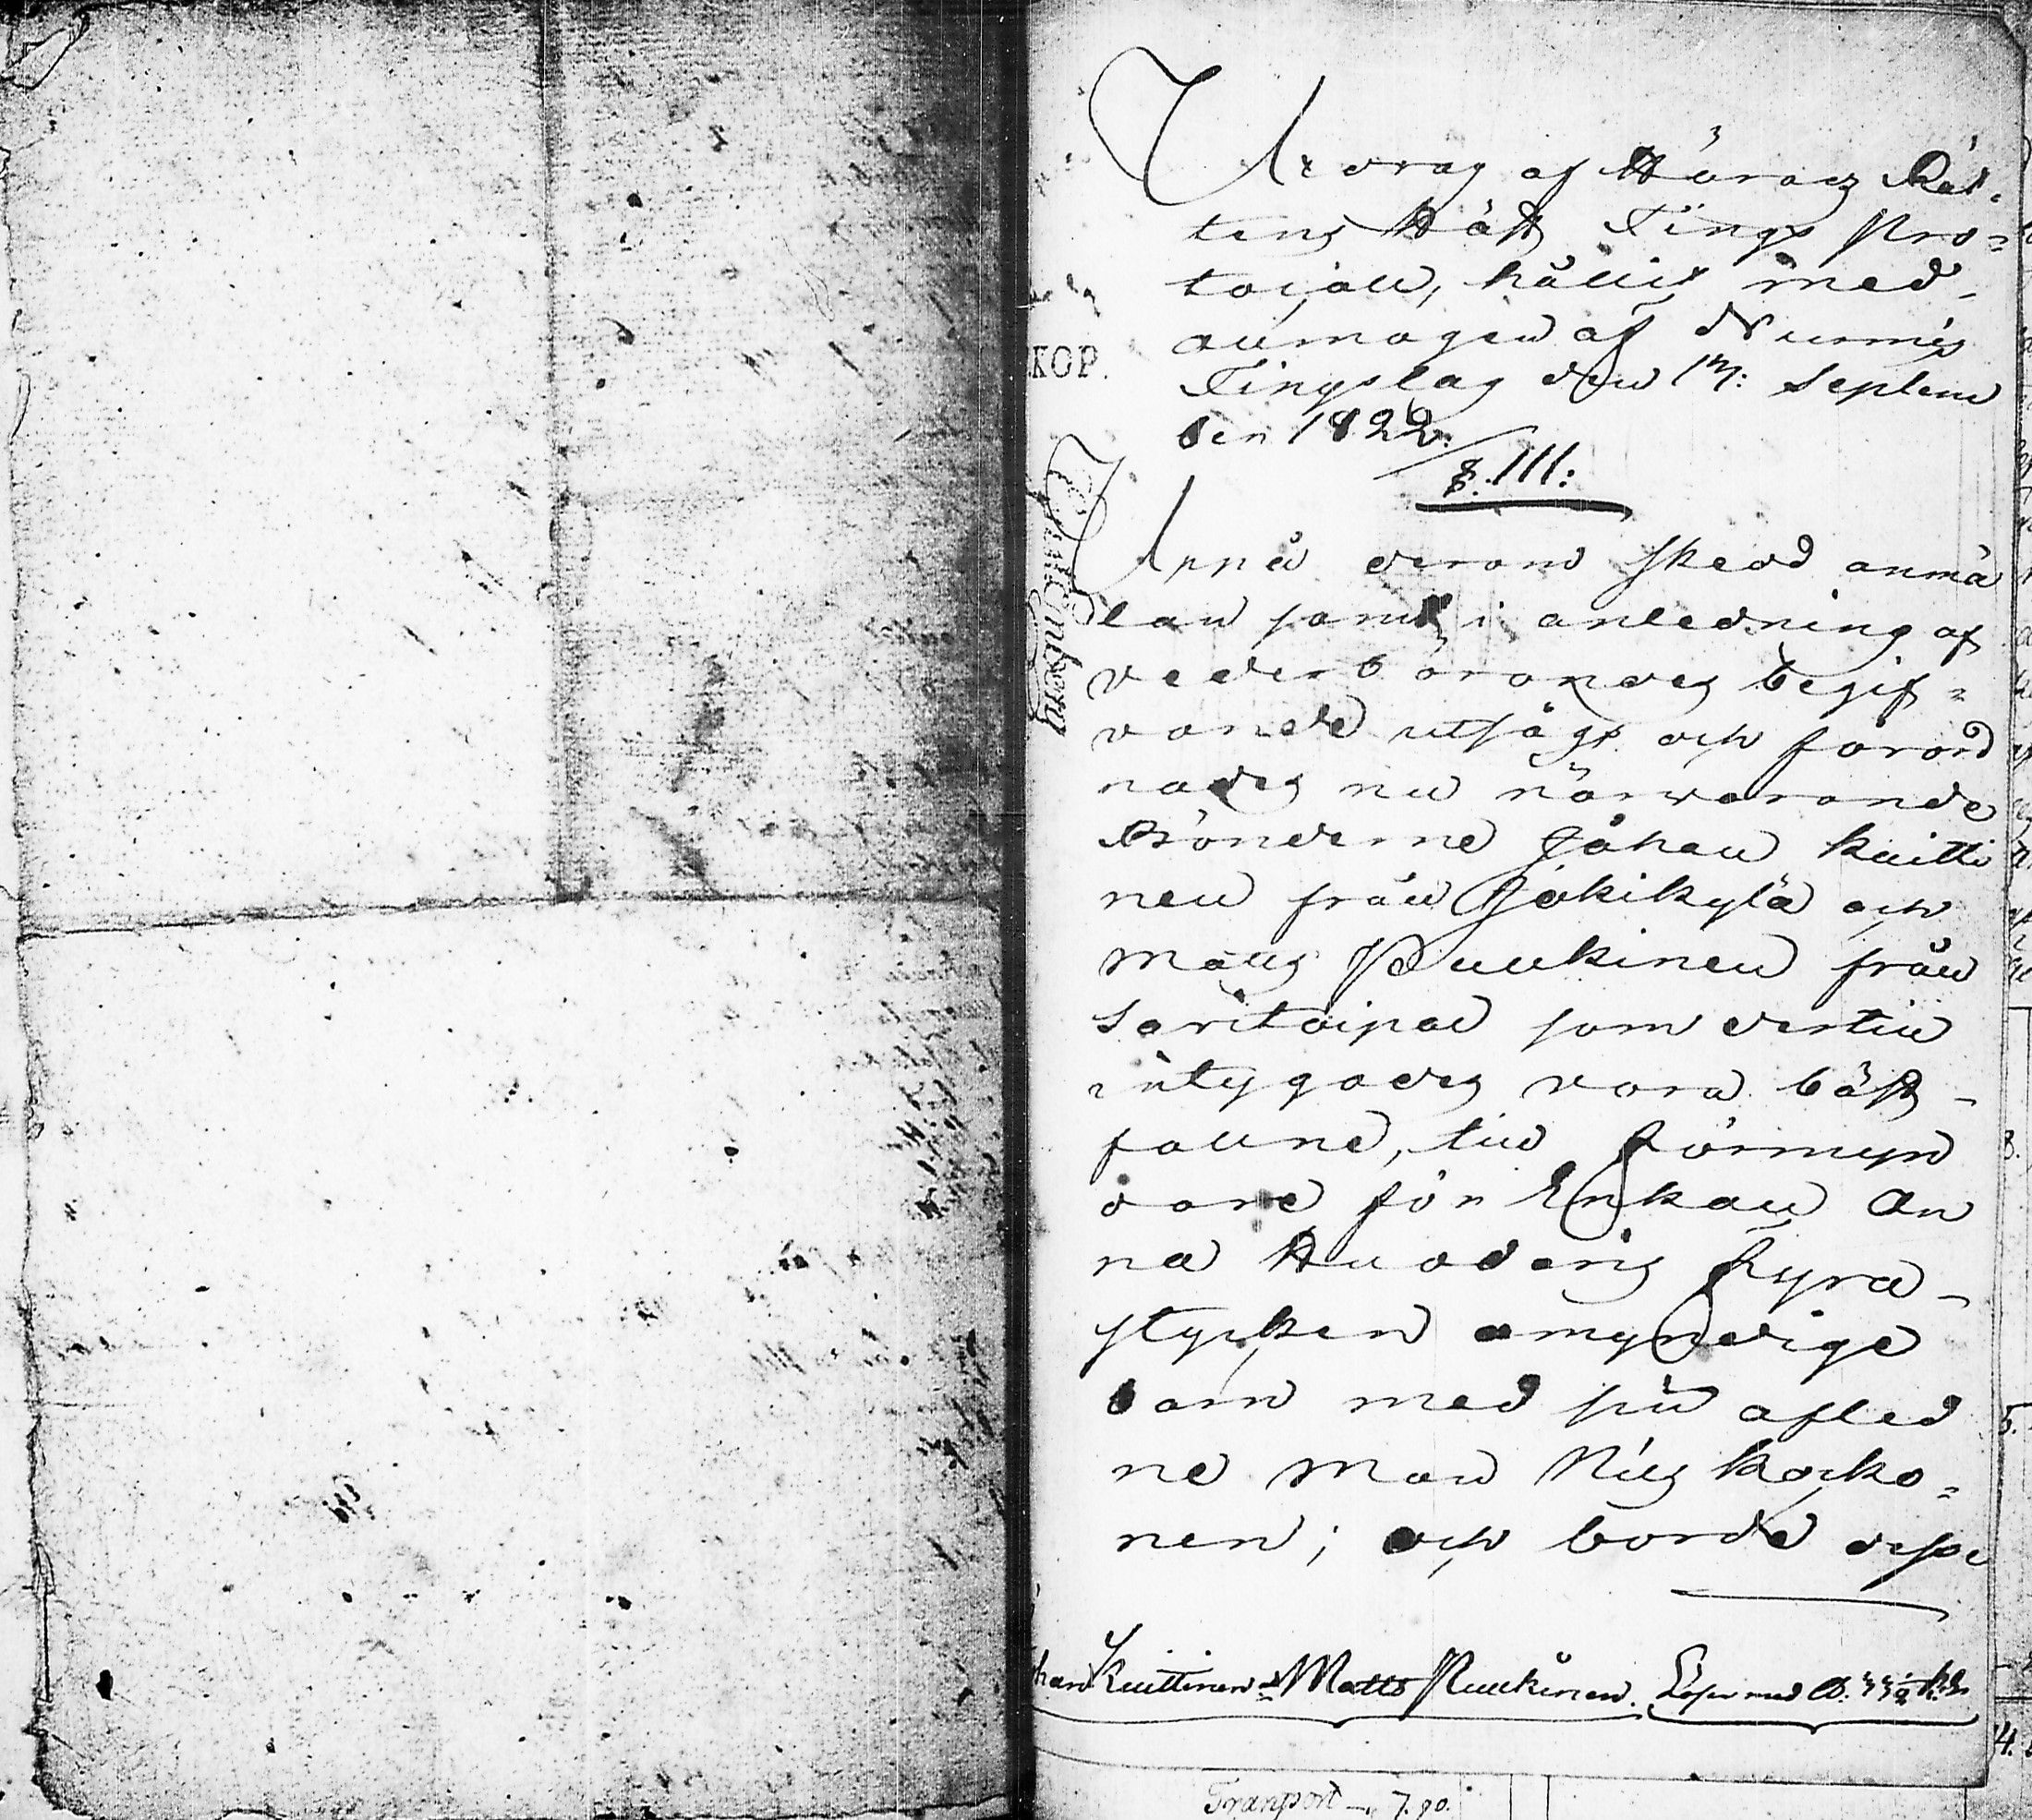 Utdrag af Härads Rät-
tens Höst Tings Pro-
tocoll, hållit med
allmogen af Nurmis
Tingslag den 17: Septem
ber 1822.
§. 111:
KOP.
Uppå derom skedd anmä
lan samt i anledning af
vederbörandes begif-
vande utsågs och förord
nades nu närvarande
Bönderne Johan Kuitti
nen från Jokikylä och
Mats Puukinen från
Saritaipal som dertill
intygades vara bäst
fallne, till förmyn
dare för Enkan An
na Huoderis fyra
stycken omyndige
barn med sin afled
ne man Nils Korho-
nen; och borde desse
han Kuittinen & Matts Puukinen. Löser med
Transport — 7.90.